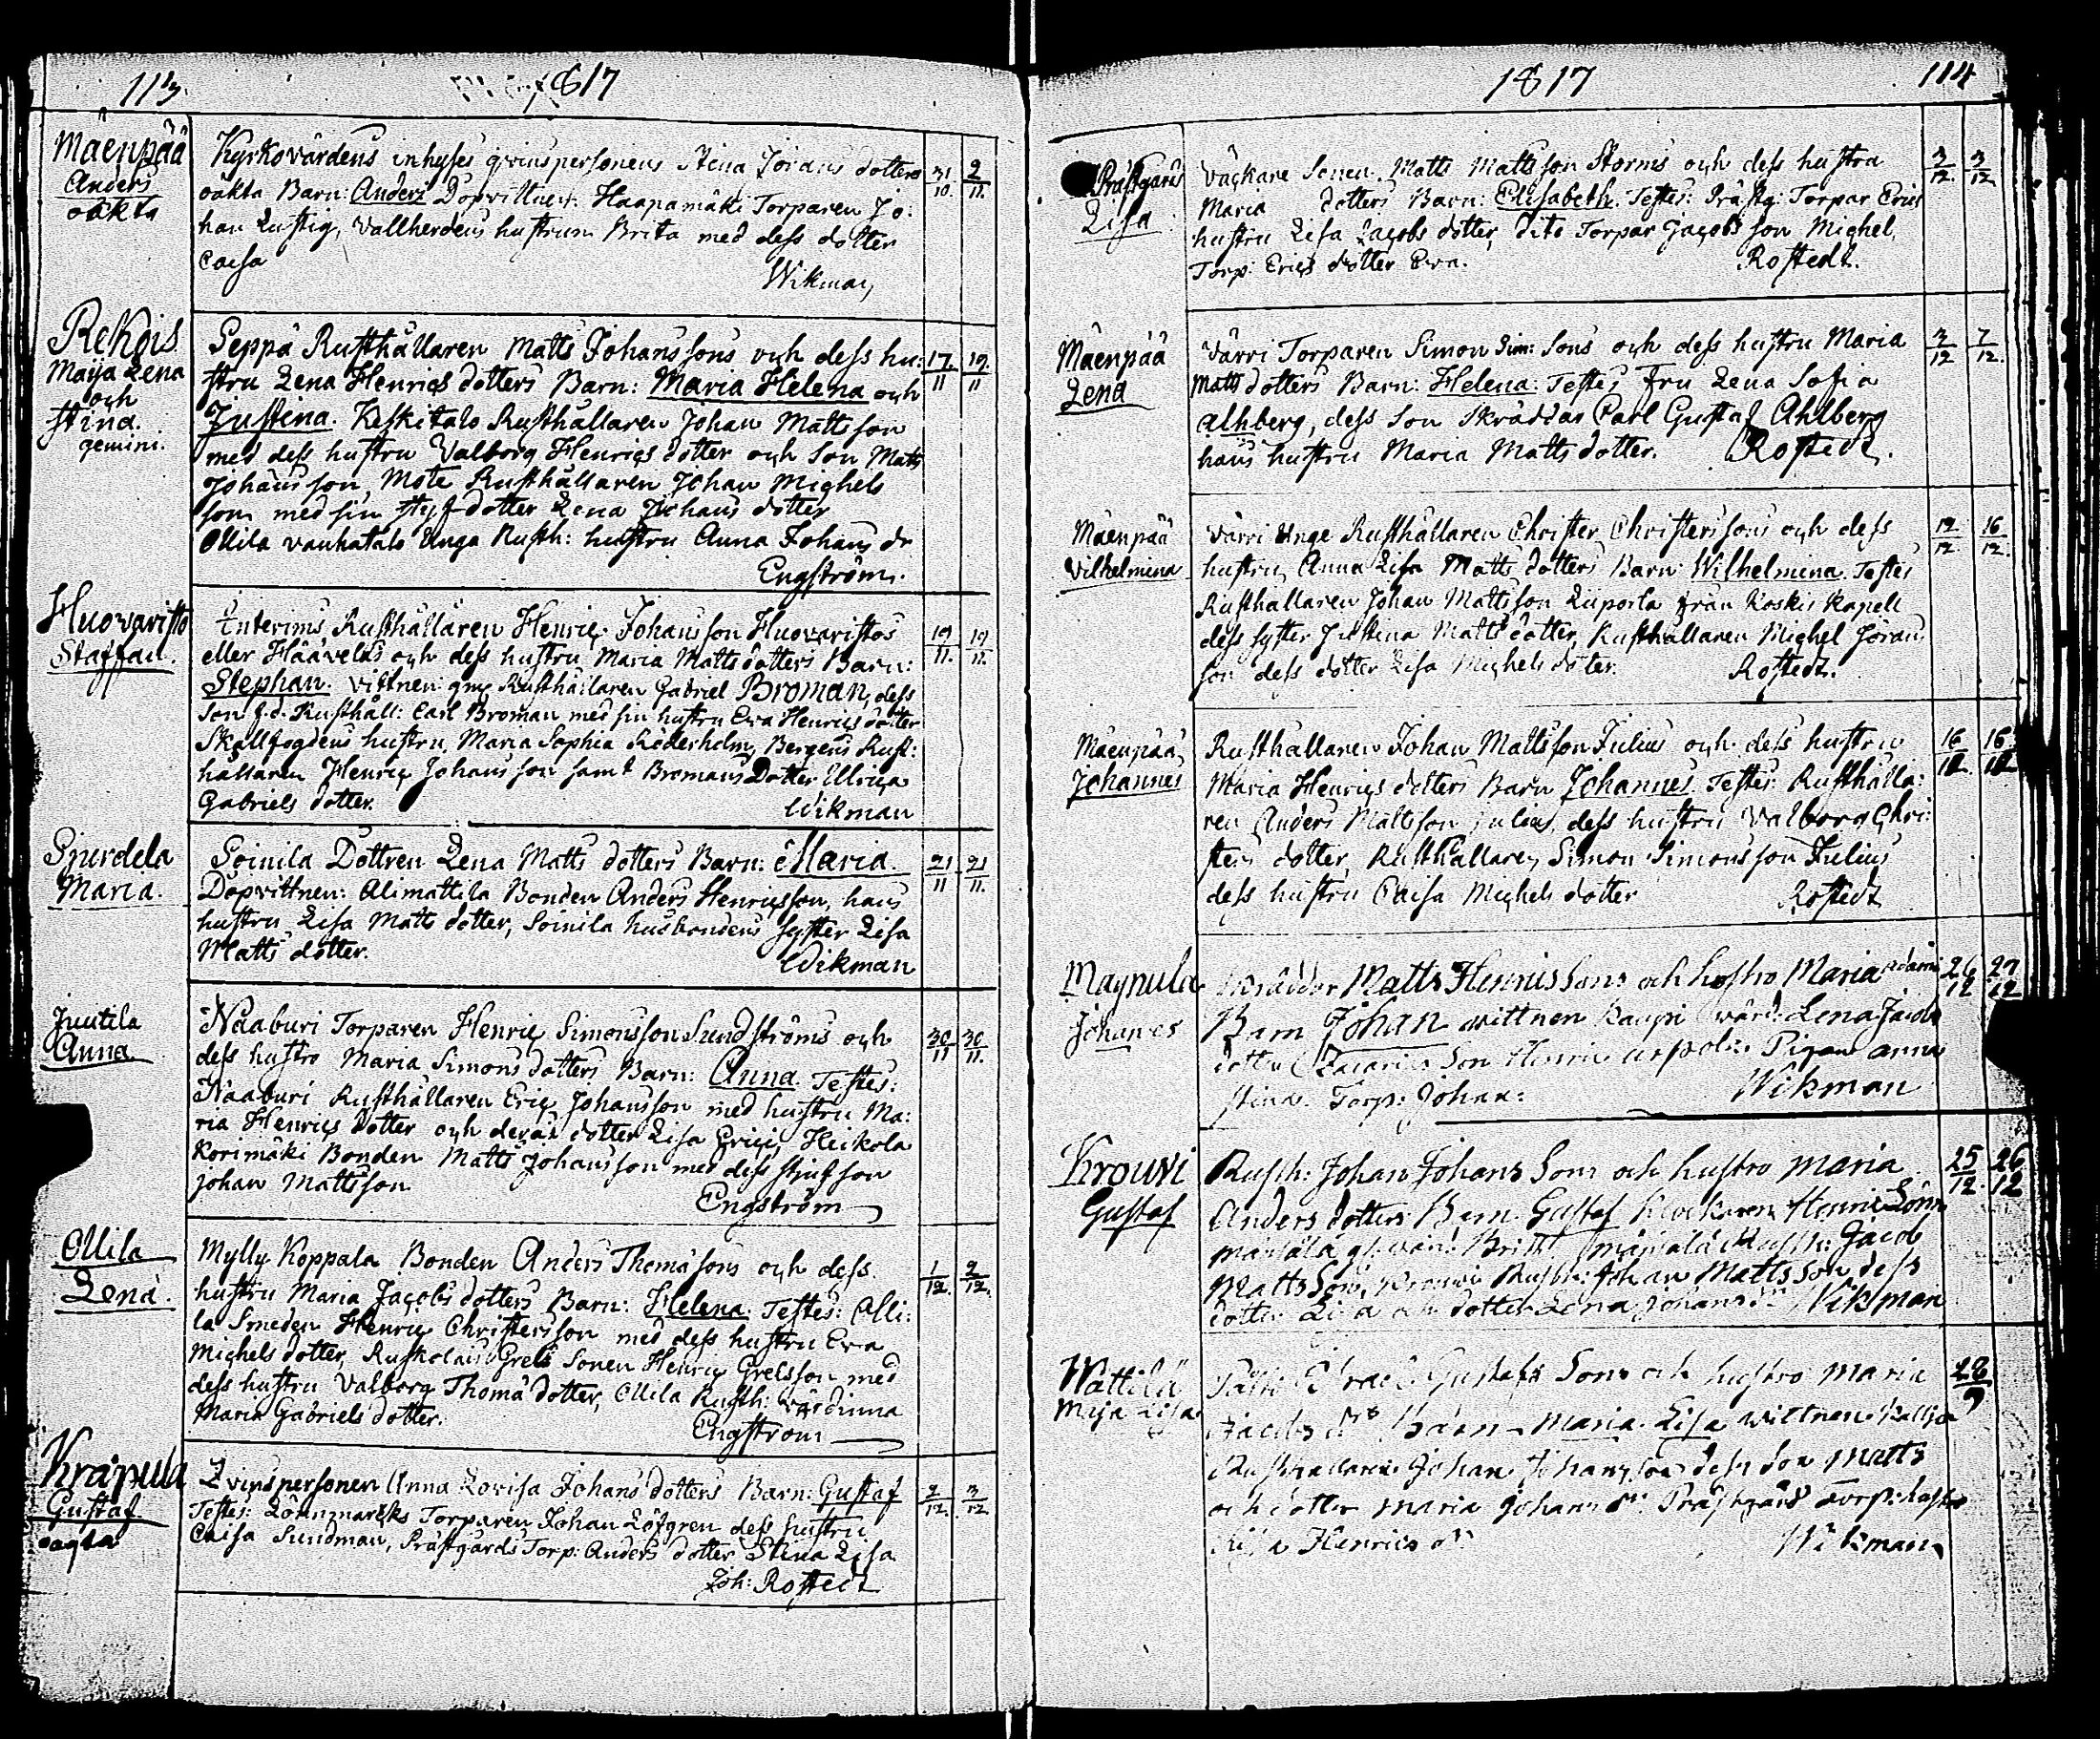 113. 1817
Mäenpää
Anders
oäkta
Kyrkovärdens inhyses qvinspersonens Stina Jörans dotters
oäkta Barn: Anders Dopvittnen: Haapamäki Torparen Jo:
han Lustig, Vallherdens hustrun Brita med dess dotter
Caisa
Wikman
31/10. 2/11.
Rekois
Maija Lena
och
Stina.
gemini.
Seppä Rusthållaren Matts Johanssons och dess hu:
stru Lena Henrics dotters Barn: Maria Helena och
Justina. Keskitalo Rusthållaren Johan Mattsson
med dess hustru Valborg Henrics dotter och Son Matts
Johansson Mote Rusthållaren Johan Michels
son med sin Styfdotter Lena Johans dotter
Ollila vanhatalo Unga Rusth: hustru Anna Johans dr
Engström.
17/11 19/11
Huovaristo
Staffan.
Interims Rusthållaren Henric Johansson Huovaristos
eller Hääveläs och dess hustru Maria Matts dotters Barn:
Stephan. vittnen: gml Rusthållaren Gabriel Broman, dess
Son f.d. Rusthåll: Carl Broman med sin hustru Eva Henrics dotter
Skallfogdens hustru, Maria Sophia Söderholm, Bergens Rust:
hållaren Henric Johansson samt Bromans Dotter Ullrica
Gabriels dotter.
Wikman
19/11. 19/11.
Sjurdela
Maria.
Soinila Dottren Lena Matts dotters Barn: Maria.
Döpvittnen: Alimattila Bonden Anders Henricsson, hans
hustru Lisa Matts dotter, Soinila husbondens Syster Lisa
Matts dotter.
Wikman
21/11 21/11.
Juutila
Anna
Naaburi Torparen Henric Simonsson Sundströms och
dess hustro Maria Simons dotters Barn: Anna. Testes:
Naaburi Rusthållaren Eric Johansson med hustru Ma:
ria Henrics Dotter och deras dotter Lisa Erici, Heikola
Korimäki Bonden Matts Johansson med dess stjufson
johan Mattsson
Engström
30/11 30/11.
Ollila
Lena.
Mylly Koppala Bonden Anders Thomæsons och dess
hustru Maria Jacobs dotters Barn: Helena. Testes: Olli:
la Smeden Henric Christersson med dess hustru Eva
Michels dotter, Grels Sonen Henric Grelsson med
dess hustru Valborg Thomædotter, Ollila Rusth: värdinna
Maria Gabriels dotter.
Engström
1/12. 2/12.
Krapula
Gustaf
oägta
Qvinspersonen Anna Lovisa Johans dotters Barn: Gustaf
Testes: Lönnmarks Torparen Johan Löfgren dess hustru
Caisa Sundman, Prästgårds Torp: Anders dotter Stina Lisa
Joh: Rostedt
2/12. 3/12
1817 114
Prästgårds
Lisa
Väckare Sonen Matts Mattsson Storms och dess hustru
Maria dotters Barn: Elisabeth. Testes: Prästg: Torpar Erics
hustru Lisa Jacobs dotter, dito Torpar Jacobs son Michel,
Torp: Erics dotter Eva.
Rostedt.
3/12. 3/12.
Mäenpää
Lena
Värri Torparen Simon Sim: Sons och dess hustru Maria
Matts dotters Barn: Helena: Testes Fru Lena Sofia
Alhberg, dess Son Skräddar Carl Gustaf Ahlberg
hans hustru Maria Matts dotter.
Rostedt.
3/12 7/12.
Mäenpää
Vilhelmina
Värri Unge Rusthållaren Christer Christerssons och dess
hustru Anna Lisa Matts dotters Barn: Wilhelmina. Testes
Rusthållaren Johan Mattsson Liiporla från Koskis Kapell
dess syster Justina Matts dotter, Rusthållaren Michel Jöran
son dess dotter Lisa Michels doter.
Rostedt.
12/12. 16/12.
Mäenpää
Johannes
Rusthållaren Johan Mattsson Julius och dess hustru
Maria Henrics dotters Barn Johannes. Testes: Rusthålla:
ren Anders Mattsson julius, dess hustru Valborg Chri:
sters dotter, Rusthållaren Simon Simonsson Julius
dess hustru Caisa Michels dotter
Rostedt
16/12. 16/12
Magnula
Johanes
Matts HenrisSons och hustro Maria Adami
Barn Johan wittnen Kaupi värd: Lena Jacobs
dotter Zacaries Son Henric Pigan anna
stina. Torp: Johan:
Wikman
26/12 27/12
Krouvi
Gustaf
Rusth: Johan Johans Sons och hustro maria
Anders dotters Barn Gustaf Klockaren Henric Lönn
Jacob
Matts Son, Krouvi Rusth: Johan Mattsson dess
dotter Lisa dotter Lena johans dr Wikman
25/12. 26/12
Wättilä
Maja Lisa
Gustafs Sons och hustro Maria
Jacobs drs Barn Maria Lisa wittnen
Rusthållaren Johan Johansson dess Son Matts
och dotter Maria Johans dr Prästgård Torp: hustr
Lisa Henrics dr
Wikman
28/9